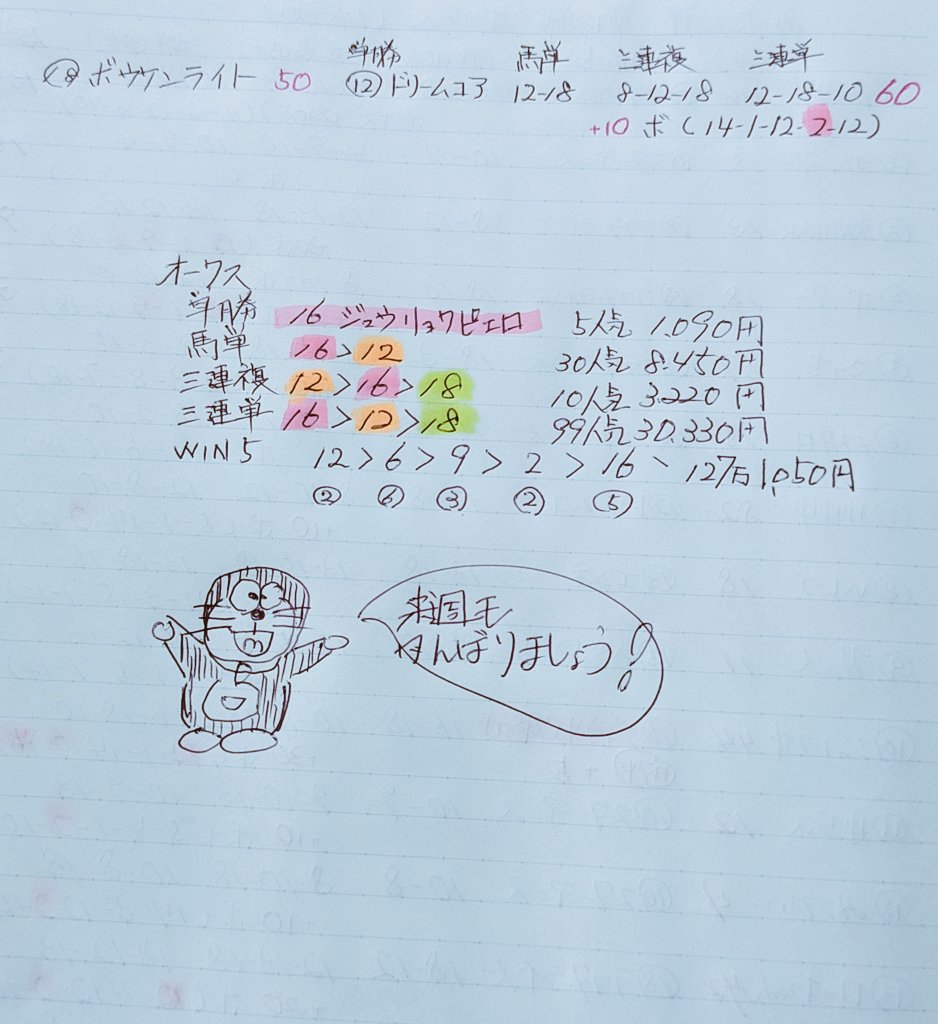 単勝 馬単 三連複 三連単
⑱ ボウケンライト 50 ⑫ドリームコア 12-18 8-12-18 12-18-10 60
+10 ボ (14-1-12-2-12)
オークス
単勝 16 ジュウリョクピエロ 5人気 1.090円
馬単 16>12 30人気 8.450円
三連複 12>16>18 10人気 3.220円
三連単 16>12>18 99人気 30.330円
WIN5 12>6>9>2>16、127万1,050円
② ⑥ ③ ② ⑤
来週も
がんばりましょう!